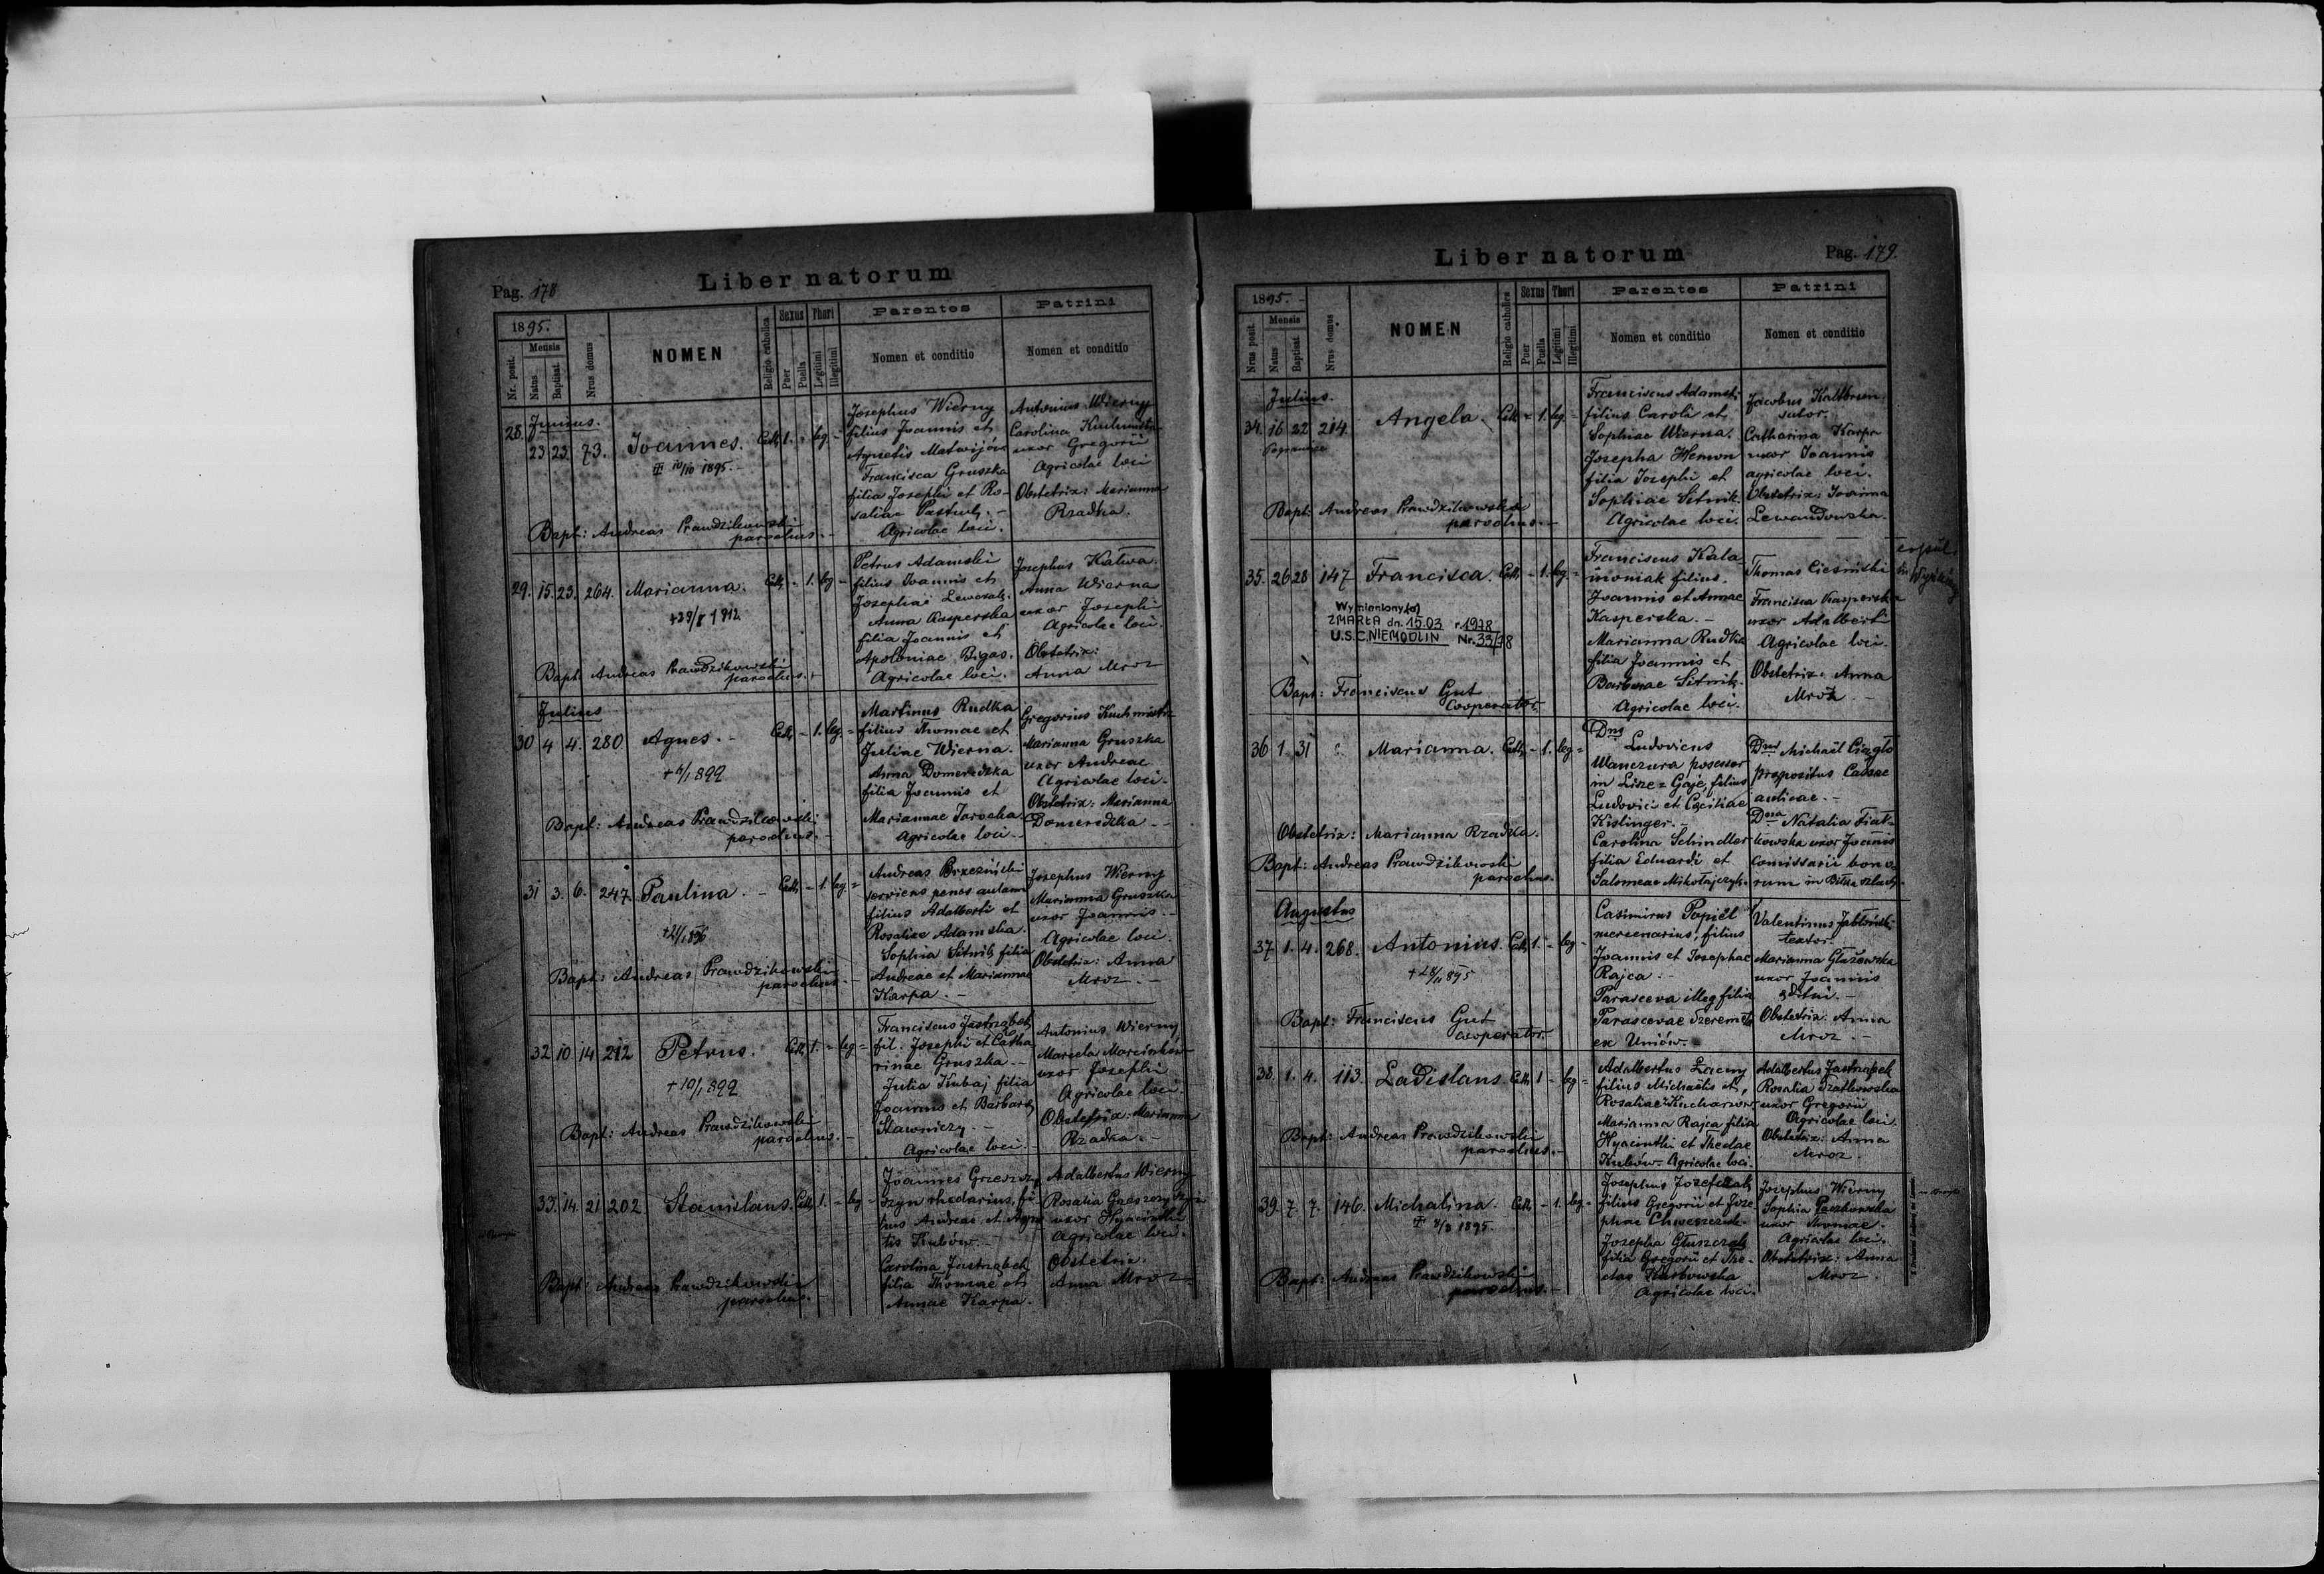 Pag. 178
Liber natorum
1895.
Nr. posit.
Mensis
Natus
Baptisat.
Nrus domus
NOMEN
Religio catholica
Sexus
Puer
Puella
Thori
Legitimi
Illegitimi
Parentes
Nomen et conditio
Patrini
Nomen et conditio
Junius.
28. 23 23. 73. Joannes. Cath. 1. - leg. -
1895.
Josephus Wierny
filius Joannis et
Agnetis Matwijów
Francisca Gruszka
filia Josephi et Ro-
saliae
Agricolae loci.
Antonius Wierny
Carolina
uxor Gregorii
Agricolae loci
Obstetrix: Marianna
Rzadka.
Bapt: Andreas Prawdzikowski
parochus.
29. 15. 23. 264. Marianna. Cath. - 1. leg -
1912
Petrus Adamski
filius Joannis et
Josephae
Anna Kasperska
filia Joannis et
Apoloniae Bigas.
Agricolae loci.
Josephus Kalwa.
Anna Wierna
uxor Josephi
Agricolae loci.
Obstetrix:
Anna Mroz
Bapt: Andreas Prawdzikowski
parochus.
Julius
30 4 4. 280 Agnes. - Cath. - 1. leg. -
899
Martinus Rudka
filius Thomae et
Juliae Wierna.
Anna Domeredzka
filia Joannis et
Mariannae Jarocha.
Agricolae loci.
Gregorius
Marianna Gruszka
uxor Andreae
Agricolae loci.
Obstetrix: Marianna
Domeredzka
Bapt: Andreas Prawdzikowski
parochus.
31 3. 6. 247. Paulina. - Cath. - 1. leg. -
896
Andreas Brzeziński
serviens penes aulam
filius Adalberti et
Rosaliae Adamska.
Sophia Sitnik filia
Andreae et Mariannae
Karpa.
Josephus Wierny
Marianna Gruszka
uxor Joannis.
Agricolae loci.
Obstetrix: Anna
Mroz.
Bapt: Andreas Prawdzikowski
parochus.
32 10 14 212 Petrus. Cath. 1. - leg -
899
Franciscus Jastrzębek
fil. Josephi et Catha
rinae Gruszka.
Julia Kubaj filia
Joannis et Barbarae
Sławniczy.
Agricolae loci.
Antonius Wierny
Marcela
uxor Josephi
Agricolae loci.
Obstetrix: Marianna
Rzadka.
Bapt: Andreas Prawdzikowski
parochus.
33. 14. 21 202. Stanislaus. Cath. 1. - leg -
Joannes
fi-
lius Andreae et Agne
tis Kubów.
Carolina Jastrzębek
filia Thomae et
Annae Karpa.
Adalbertus Wierny
Rosalia
uxor Hyacinthi
Agricolae loci.
Obstetrix.
Anna Mroz
Bapt: Andreas Prawdzikowski
parochus.
Liber natorum
Pag. 179.
1895.
Nrus posit.
Mensis
Natus
Baptisat.
Nrus domus
NOMEN
Religio catholica
Sexus
Puer
Puella
Thori
Legitimi
Illegitimi
Parentes
Nomen et conditio
Patrini
Nomen et conditio
Julius.
34. 16 22 214. Angela. Cath. - 1. leg. -
Franciscus Adamski
filius Caroli et
Sophiae Wierna.
Josepha Hemon
filia Josephi et
Sophiae Sitnik.
Agricolae loci.
Jacobus Kaltbrun
sutor.
Catharina Karpa
uxor Joannis
agricolae loci.
Obstetrix: Joanna
Lewandowska.
Bapt: Andreas Prawdzikowski
parochus.
35. 26 28 147 Francisca. Cath. - 1. leg. -
Wymieniony(a)
ZMARŁA dn. 15.03 r. 1978
U.S.C. NIEMODLIN Nr. 33/78
Franciscus Kala
filius
Joannis et Annae
Kasperska.
Marianna Rudka
filia Joannis et
Barbarae Sitnik.
Agricolae loci.
Thomas Ciesiński
Francisca Kasperska
uxor Adalberti
Agricolae loci.
Obstetrix: Anna
Mroz
Bapt: Franciscus Gut
Cooperator.
36 1. 31 Marianna. Cath. - 1. leg -
Dns
Ludovicus
Wanczura possessor
in Lisze-Gaje, filius
Ludovici et Ceciliae
Kislinger.
Carolina Schindler
filia Eduardi et
Salomeae Mikołajczyk.
Dnus Michaël Ciągło
propositus Caesae
aulicae.
Dna Natalia
uxor Joannis
Comissarii bono
rum in Biłka szlach.
Obstetrix: Marianna Rzadka.
Bapt: Andreas Prawdzikowski
parochus.
Augustus
37 1. 4. 268. Antonius. Cath. 1. - leg -
895
Casimirus Popiel
mercenarius, filius
Joannis et Josephae
Rajca.
Parasceva Meg filia
Parascevae Szeremeta
ex Uniów.
Valentinus Jabłoński
textor.
Marianna Głażewska
uxor Joannis
Obstetrix: Anna
Mroz.
Bapt: Franciscus Gut
cooperator.
38. 1. 4. 113. Ladislaus. Cath. 1 - leg -
Adalbertus Łacny
filius Michaëlis et
Rosaliae
Marianna Rajca filia
Hyacinthi et Theclae
Kubów. Agricolae loci.
Adalbertus Jastrzębek
Rosalia
uxor Gregorii
Agricolae loci.
Obstetrix: Anna
Mroz.
Bapt: Andreas Prawdzikowski
parochus.
39. 7. 7. 146. Michalina. Cath. - 1. leg -
1895.
Josephus Józefczak
filius Gregorii et Jose
phae
Josepha Głuszczak
filia Gregorii et The-
clae Karbowska
Agricolae loci.
Josephus Wierny
Sophia Paczkowska
uxor Thomae.
Agricolae loci.
Obstetrix: Anna
Mroz.
Bapt: Andreas Prawdzikowski
parochus.